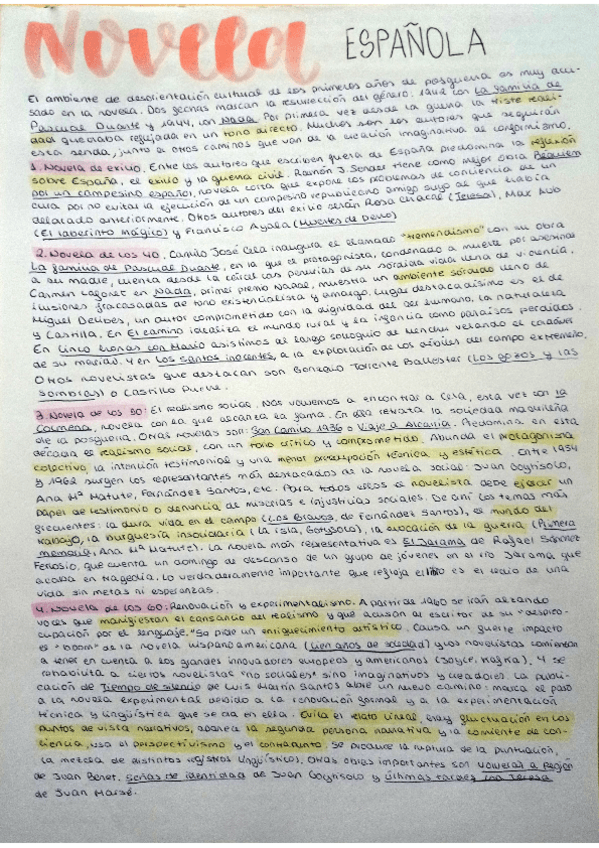 Novela ESPAÑOLA
El ambiente de desorientación cultural de los primeros años de posguerra es muy acu-
sado en la novela. Dos fechas marcan la resurrección del género: 1942 con La familia de
Pascual Duarte y 1944, con Nada. Por primera vez desde la guerra la triste reali-
dad quedaba reflejada en un tono directo. Muchos son los autores que seguirán
esta senda, junto a otros caminos que van de la creación imaginativa al conformismo.
1. Novela de exilio. Entre los autores que escriben fuera de España predomina la reflexión
sobre España, el exilio y la guerra civil. Ramón J. Sender tiene como mejor obra Requiem
por un campesino español, novela corta que expone los problemas de conciencia de un
cura por no evitar la ejecución de un campesino republicano amigo suyo al que habría
delatado anteriormente. Otros autores del exilio serán Rosa Chacel (Teresa), Max Aub
(El laberinto mágico) y Francisco Ayala (Muertes de perro)
2. Novela de los 40. Camilo José Cela inaugura el llamado "tremendismo" con su obra
La familia de Pascual Duarte, en la que el protagonista, condenado a muerte por asesinar
a su madre, cuenta desde la cárcel las penurias de su sórdida vida llena de violencia.
Carmen Laforet en Nada, primer premio Nadal, muestra un ambiente sórdido lleno de
ilusiones fracasadas de tono existencialista y amargo. Lugar destacadísimo es el de
Miguel Delibes, un autor comprometido con la dignidad del ser humano, la naturaleza
y Castilla. En El camino idealiza el mundo rural y la infancia como paraísos perdidos.
En Cinco horas con Mario asistimos al largo soliloquio de Menchu velando el cadáver
de su marido. Y en Los santos inocentes, a la exploración de los árboles del campo extremeño.
Otros novelistas que destacan son Gonzalo Torrente Ballester (Los gozos y las
sombras) o Castillo Puche.
3. Novela de los 50: El realismo social. Nos volvemos a encontrar a Cela, esta vez con La
Colmena, novela con la que alcanza la fama. En ella retrata la sociedad madrileña
de la posguerra. Otras novelas son: San Camilo 1936 o Viaje a Alcarria. Predomina en esta
década el realismo social, con un tono crítico y comprometido. Abunda el protagonista
colectivo, la intención testimonial y una menor preocupación técnica y estética. Entre 1954
y 1962 surgen los representantes más destacados de la novela social: Juan Goytisolo,
Ana Mª Matute, Fernández Santos, etc. Para todos ellos el novelista debe ejercer un
papel de testimonio o denuncia de miserias e injusticias sociales. De ahí los temas más
frecuentes: la dura vida en el campo (Los Bravos, de Fernández Santos), el mundo del
trabajo, la burguesía insolidaria (La isla, Goytysolo), la evocación de la guerra (Primera
memoria, Ana Mª Matute). La novela más representativa es El Jarama de Rafael Sánchez
Ferlosio, que cuenta un domingo de descanso de un grupo de jóvenes en el río Jarama que
acaba en tragedia. Lo verdaderamente importante que refleja el libro es el tedio de una
vida sin metas ni esperanzas.
4. Novela de los 60: Renovación y experimentalismo. A partir de 1960 se irán alzando
voces que manifiestan el cansancio del realismo y que acusan al escritor de su "despreo-
cupación por el lenguaje." Se pide un enriquecimiento artístico. Causa un fuerte impacto
el "boom" de la novela hispanoamericana (Cien años de soledad) y los novelistas comienzan
a tener en cuenta a los grandes innovadores europeos y americanos (Joyce, Kafka). Y se
rehabilita a ciertos novelistas "no sociales" sino imaginativos y creadores. La publi-
cación de Tiempo de silencio de Luis Martín Santos abre un nuevo camino: marca el paso
a la novela experimental debido a la renovación formal y a la experimentación
técnica y lingüística que se da en ella. Evita el relato lineal, hay fluctuación en los
puntos de vista narrativos, aparece la segunda persona narrativa y la corriente de con-
ciencia, usa el perspectivismo y el contrapunto. Se produce la ruptura de la puntuación,
la mezcla de distintos registros lingüísticos). Otras obras importantes son Volverás a Región
de Juan Benet, Señas de identidad de Juan Goytisolo y Últimas tardes con Teresa
de Juan Marsé.